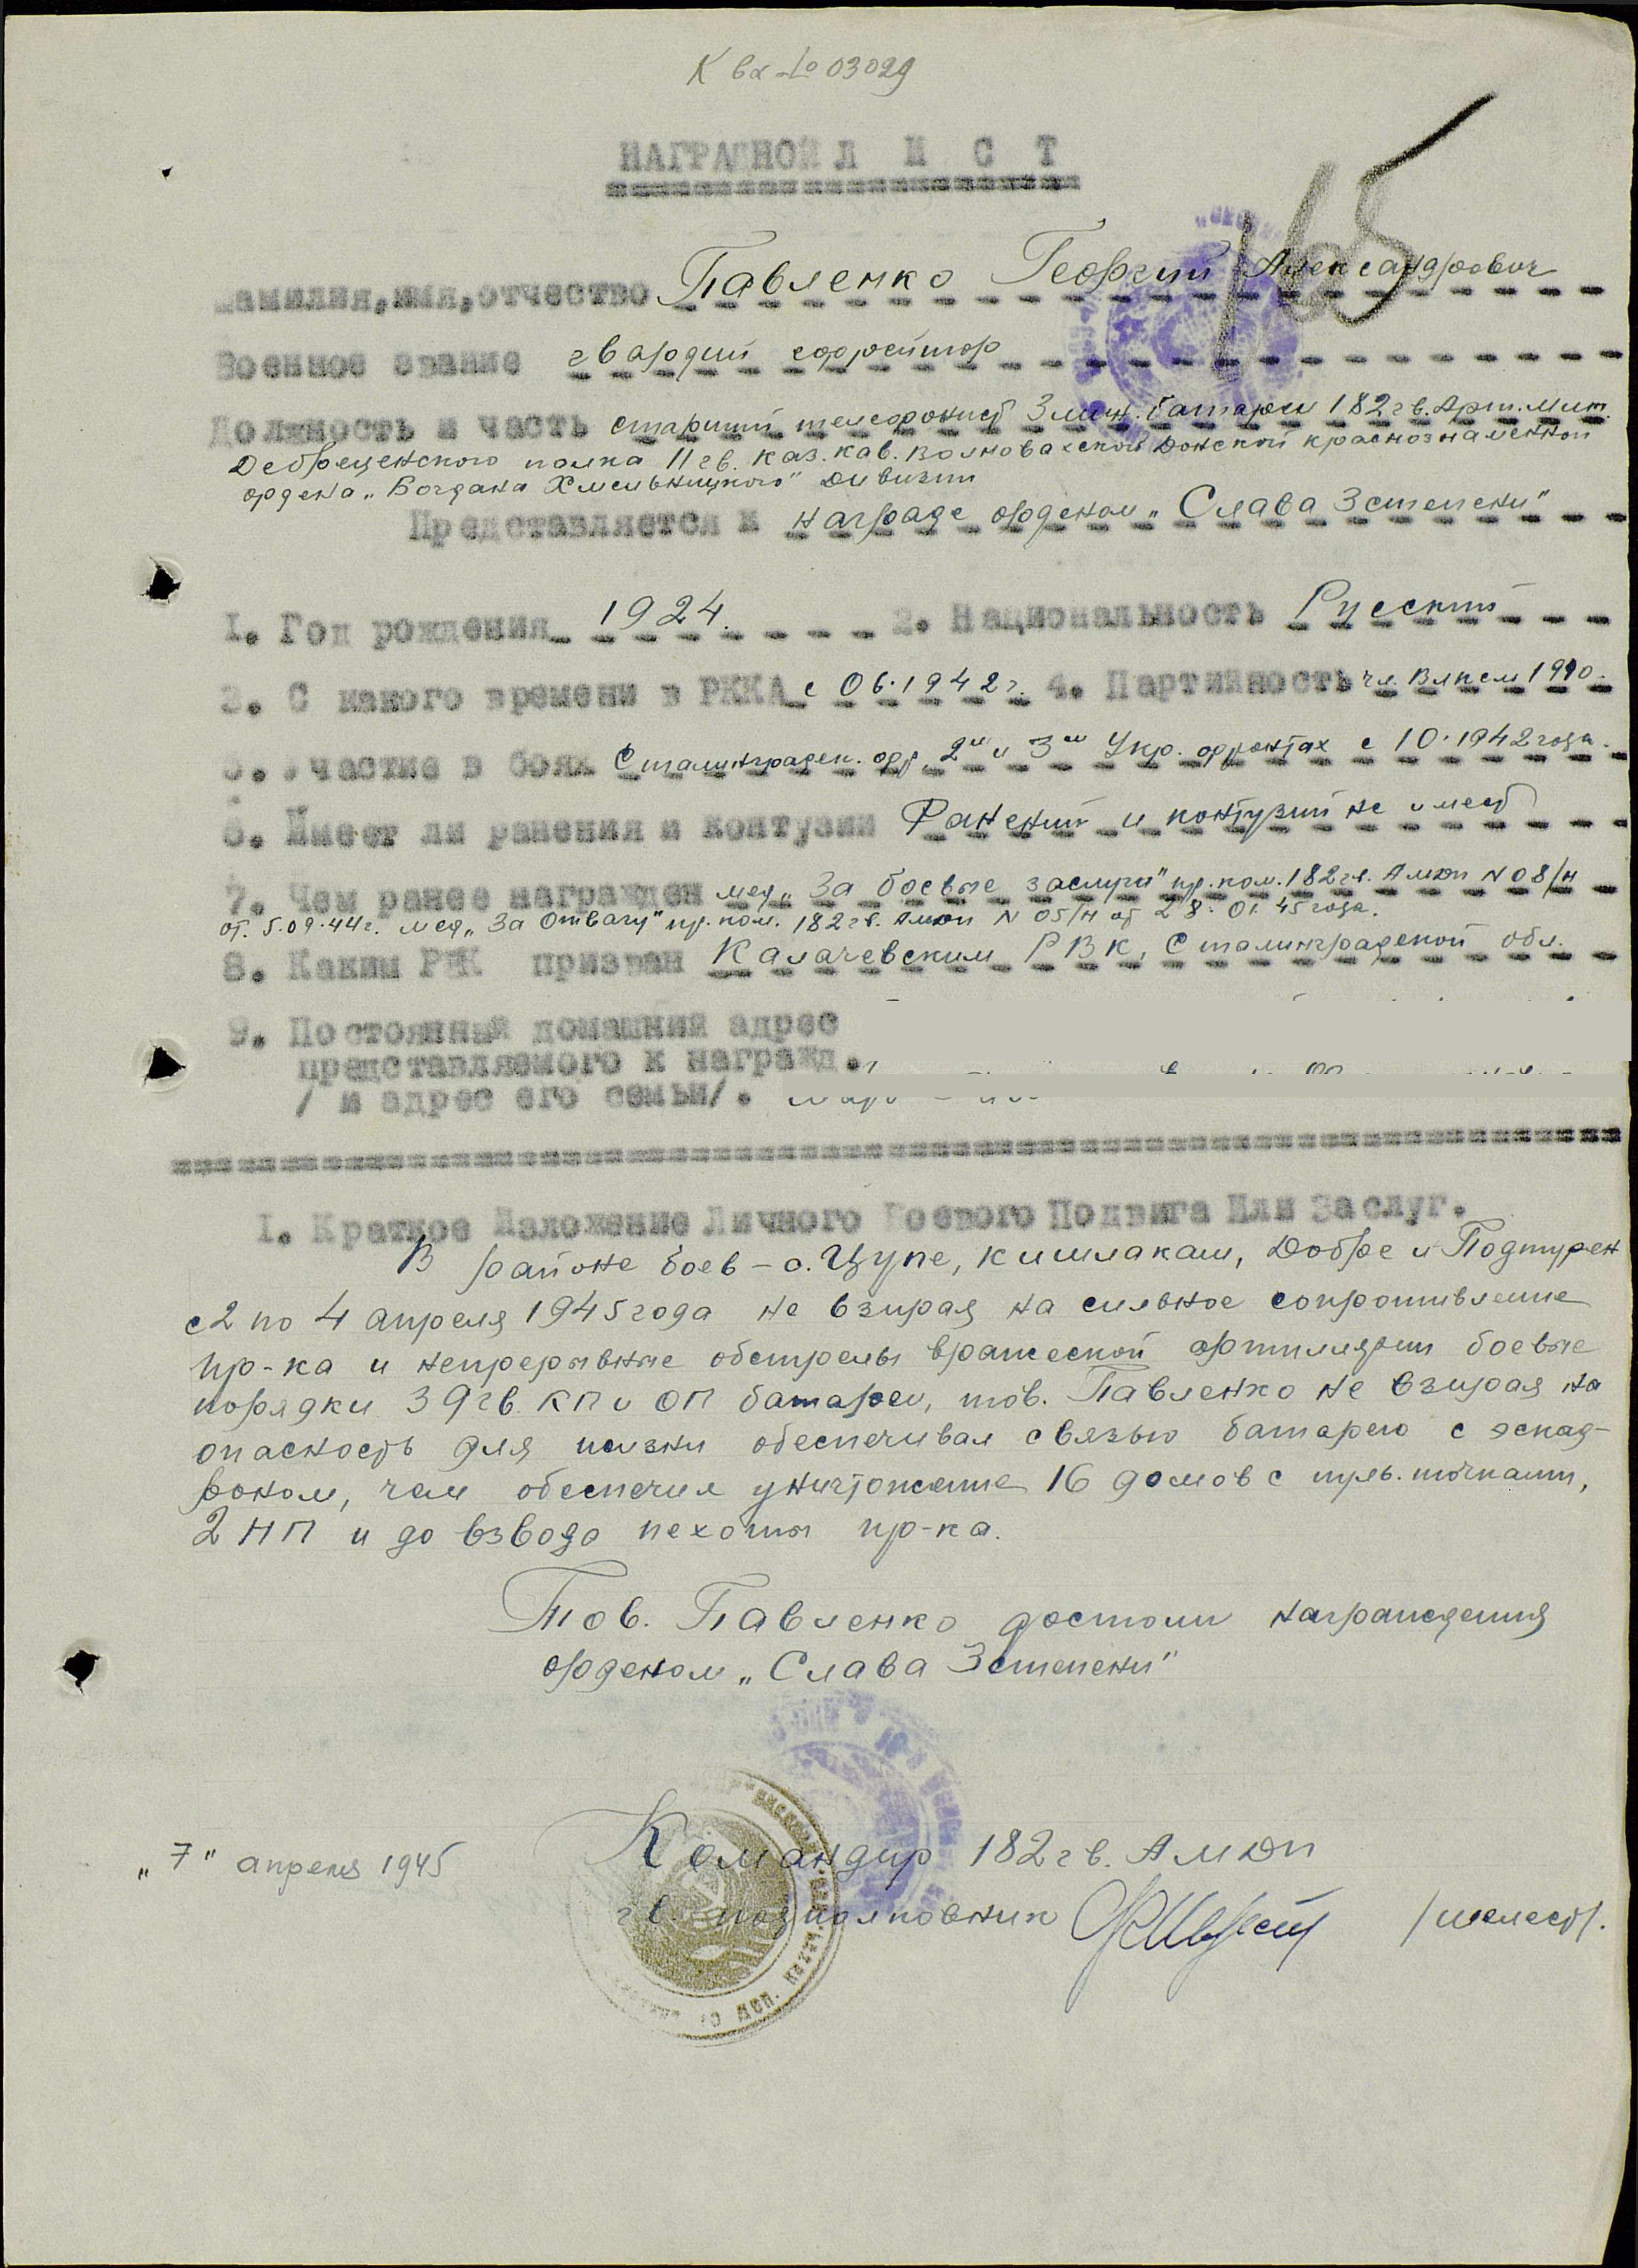 К вх № 03029
НАГРАДНОЙ Л И С Т
Фамилия, имя, отчество Павленко Георгий Александрович
Военное звание гвардии ефрейтор
Должность и часть старший телефонист 3 мин. батареи 182 гв. Арт. Мин.
Дебреценского полка 11 гв. каз. кав. Волновахской Донской краснознаменной
ордена „Богдана Хмельницкого" дивизии
Представляется к награде орденом „Слава 3 степени"
1. Год рождения 1924. 2. Национальность Русский
3. С какого времени в РККА с 06.1942 г. 4. Партийность чл. Влксм 1940.
5. Участие в боях Сталинградск. фр. 2м и 3м Укр. фронтах с 10.1942 года.
6. Имеет ли ранения и контузии Ранений и контузий не имеет
7. Чем ранее награжден мед „За боевые заслуги" пр. пол. 182 гв. Амдп N 08/н
от. 5.09.44г. мед „За Отвагу" пр. пол. 182 гв. Амдп N 05/н от 28.01.45 года.
8. Каким РВК призван Калачевским РВК, Сталинградской обл.
9. Постоянный домашний адрес
представляемого к награжд.
/ и адрес его семьи/.
I. Краткое Изложение Личного Боевого Подвига Или Заслуг.
В районе боев – о. Цупе, кишлакаш, Добре и Подтурен
с 2 по 4 апреля 1945 года не взирая на сильное сопротивление
пр-ка и непрерывные обстрелы вражеской артиллерии боевые
порядки 39 гв. КП и ОП батареи, тов. Павленко не взирая на
опасность для жизни обеспечивал связью батарею с эскад-
роном, чем обеспечил уничтожение 16 домов с пул. точками,
2 НП и до взвода пехоты пр-ка.
Тов. Павленко достоин награждения
орденом „Слава 3 степени"
„7" апреля 1945
Командир 182 гв. Амдп
гв. подполковник /шелест/.